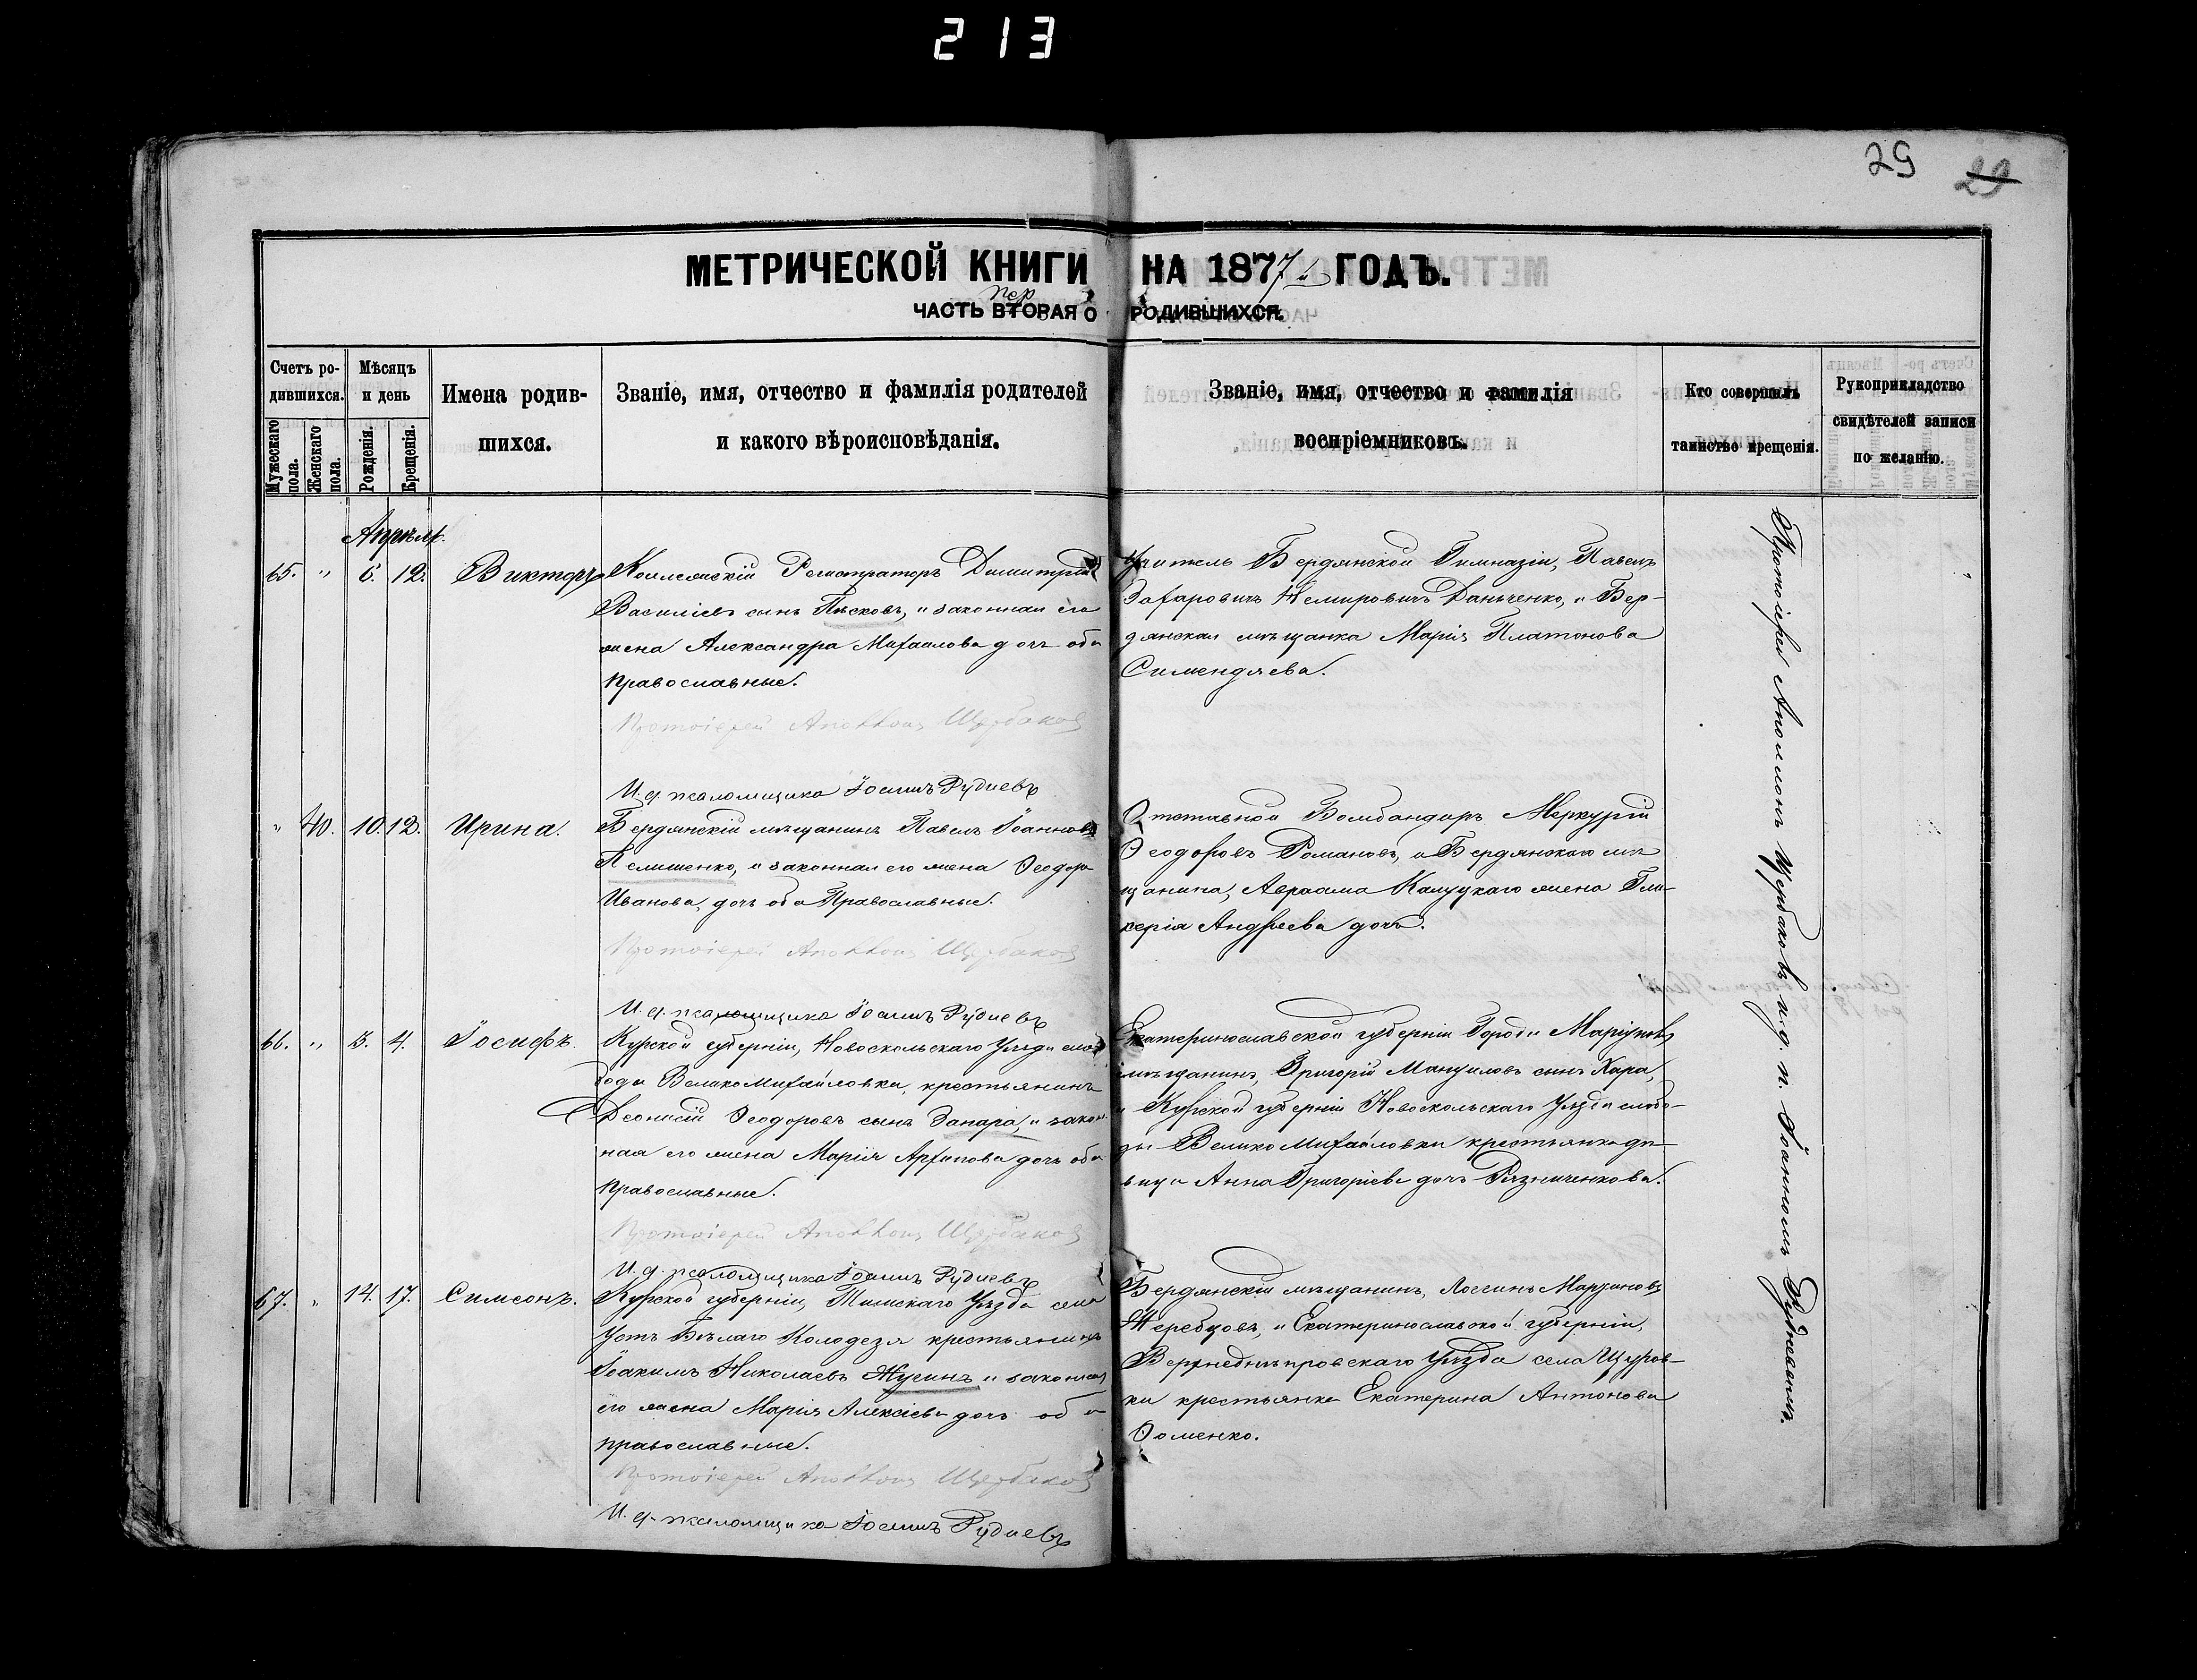 213
29
29
МЕТРИЧЕСКОЙ КНИГИ НА 1877й ГОДЪ.
пер
ЧАСТЬ ВТОРАЯ О РОДИВШИХСЯ.
Счетъ ро-
дившихся.
Мужескаго пола.
Женскаго пола.
Мѣсяцъ
и день
Рожденія.
Крещенія.
Имена родив-
шихся.
Званіе, имя, отчество и фамилія родителей
и какого вѣроисповѣданія.
Званіе, имя, отчество и фамилія
воспріемниковъ.
Кто совершалъ
таинство крещенія.
Рукоприкладство
свидѣтелей записи
по желанію.
Апрѣль.
65. " 6. 12. Викторъ
Коллежскій Регистраторъ Димитрій
Василіевъ сынъ Пѣсковъ, и законная его
жена Александра Михаилова дочь оба
православные.
Протоіерей Аполлонъ Щербаковъ
И. д. псаломщика Іоаннъ Рудневъ
Учитель Бердянской Гимназіи, Павелъ
Захаровичъ Немировичъ Даньченко, и Бер-
дянская мѣщанка Марія Платонова
Симендяева.
" 40. 10. 12. Ирина.
Бердянскій мѣщанинъ Павелъ Іоанновъ
Пелишенко, и законная его жена Ѳеодора
Иванова, дочь оба Православные.
Протоіерей Аполлонъ Щербаковъ
И. д. псаломщика Іоаннъ Рудневъ
Отставной Бомбандиръ Меркурій
Ѳеодоровъ Романовъ, и Бердянскаго мѣ
щанина, Авраама Калуцкаго жена Гли-
керія Андреева дочь.
66. " 3. 4. Іосифъ.
Курской губерніи, Новоскольскаго Уѣзда сло
боды ВеликоМихайловка, крестьянинъ
Деонисій Ѳеодоровъ сынъ Запара, и закон
ная его жена Марія Архипова дочь оба
православные.
Протоіерей Аполлонъ Щербаковъ
И. д. псаломщика Іоаннъ Рудневъ
Екатеринославской губерніи Города Маріуполя
мѣщанинъ, Григорій Мануиловъ сынъ Хара,
и Курской губерніи Новоскольскаго Уѣзда слобо-
ды ВеликоМихайловки крестьянка дѣ-
вица Анна Григоріева дочь Рязниченкова.
67. " 14. 17. Симеонъ.
Курской губерніи, Тимскаго Уѣзда села
Усть Бѣлаго Колодезя крестьянинъ
Іоакимъ Николаевъ Жусинъ и законная
его жена Марія Алексіева дочь оба
православные.
Протоіерей Аполлонъ Щербаковъ
И. д. псаломщика Іоаннъ Рудневъ
Бердянскій мѣщанинъ, Логгинъ Мартиновъ
Жеребцовъ, и Екатеринославской губерніи,
Верхнеднѣпровскаго Уѣзда села Щуров-
ки крестьянка Екатерина Антонова
Ѳоменко.
Протоіерей Аполлонъ Щербаковъ и. д. п. Іоанномъ Рудневымъ.